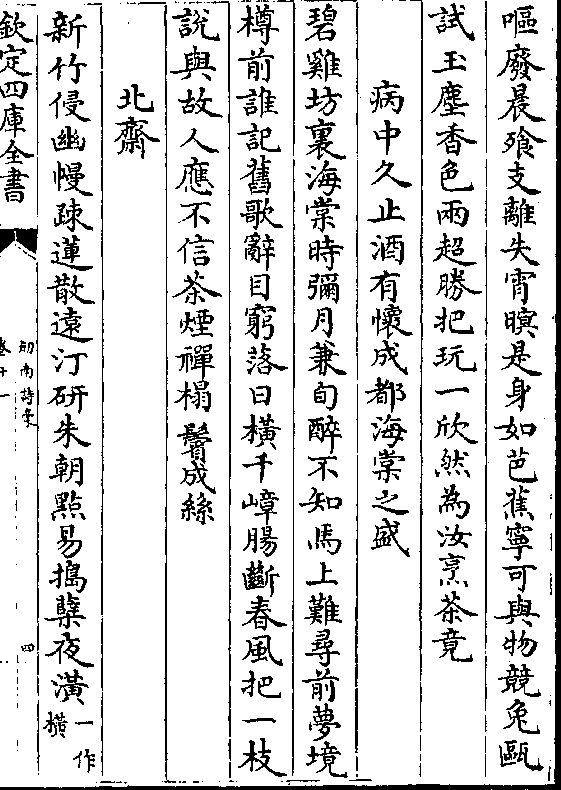 嘔廢晨飱支離失宵瞑是身如芭蕉寧可與物競兔甌
試玉塵香色兩超勝把玩一欣然為汝烹茶竟
病中久止酒有懷成都海棠之盛
碧雞坊裏海棠時彌月兼旬醉不知馬上難尋前夢境
樽前誰記舊歌辭目窮落日橫千嶂腸斷春風把一枝
說與故人應不信茶煙禪榻鬢成絲
北齋
新竹侵幽幔踈蓮散遠汀研朱朝點易搗蘗夜潢一作橫
欽定四庫全書
劍南詩稾
卷十一
四